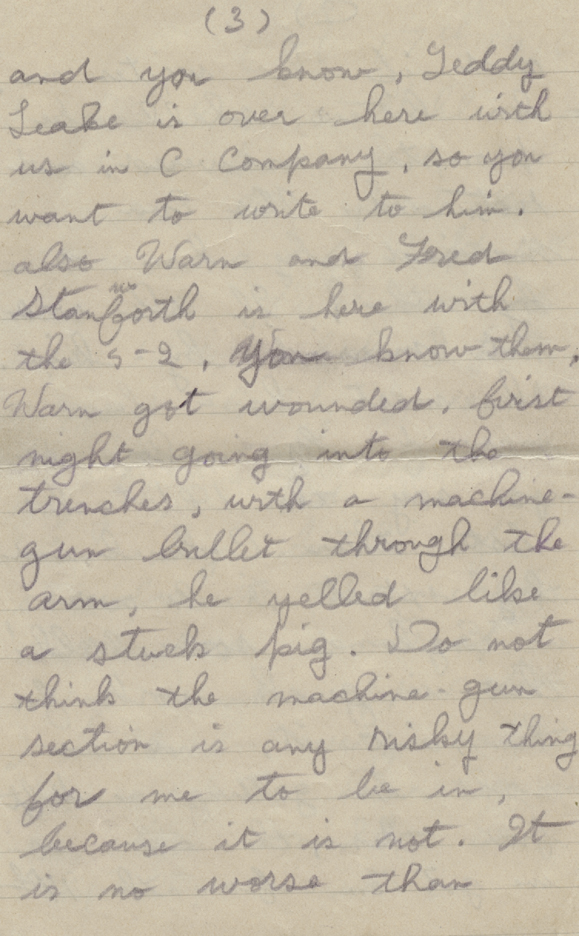 (3)
and you know, Teddy
Leake is over here with
us in C Company, so you
want to write to him.
also Warn and Fred
Stanforth is here with
the 5-2, You know them,
Warn got wounded, first
night going into the
trenches, with a machine-
gun bullet through the
arm, he yelled like
a stuck pig. Do not
think the machine-gun
section is any risky thing
for me to be in,
because it is not. It
is no worse than